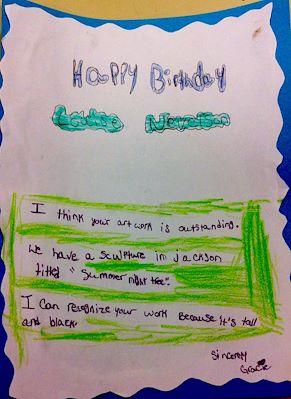 Happy Birthday
Louise Nevelson
I think your art work is outstanding.
We have a sculpture in Jackson
titled "Summer night tree".
I can recognize your work because it's tall
and black.
Sincerely
Gracie